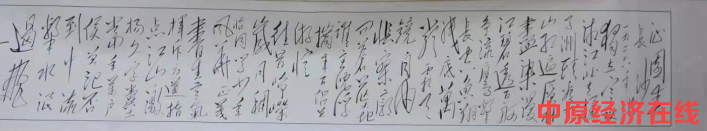 沁園春
长沙
独立寒秋
湘江北去
子洲头
山红遍层林
尽染漫
江碧透百舸
争流鹰击
长空鱼翔
浅底万
类霜天
竞自由
怅寥廓
问苍茫大地
谁主沉浮
携来百侣
曾游忆
往昔峥嵘
岁月稠
恰同学少年
风华正茂
书生意气
挥斥方遒指
点江山激
扬文字粪土
当年万户
侯曾记否
到中流
击水浪
遏飞
中原经济在线